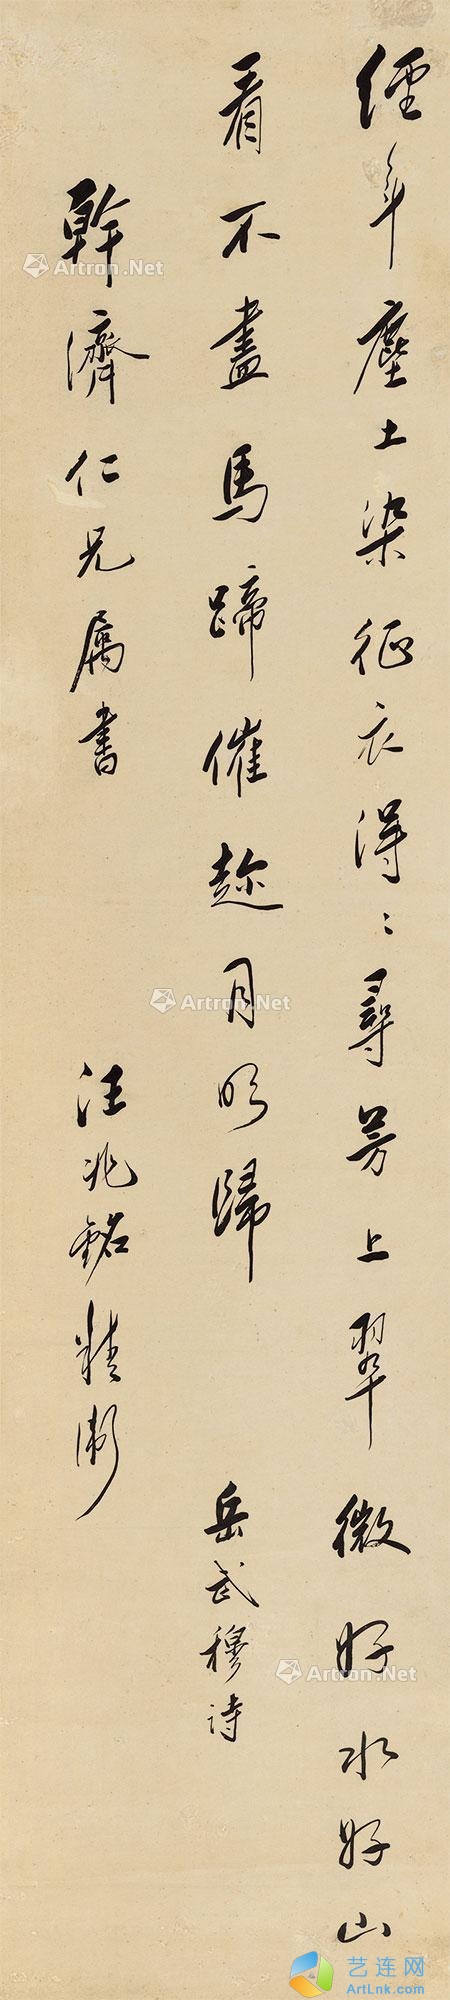 經年塵土染征衣得〻尋芳上翠微好水好山
看不盡馬蹄催趂月明歸
岳武穆詩
幹濟仁兄属書
汪兆銘精衛
Artron.Net
Artron.Net
Artron.Net
艺连网
ArtLnk.com